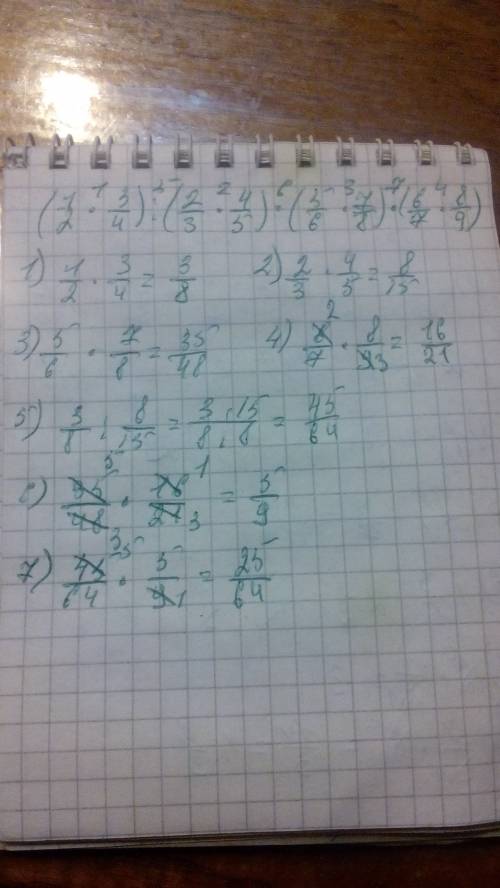 (1/2 ·¹ 3/4) :⁵ (2/3 ·² 4/5) ·⁶ (5/6 ·³ 7/8) ·⁷ (6/7 ·⁴ 8/9)
1) 1/2 · 3/4 = 3/8 2) 2/3 · 4/5 = 8/15
3) 5/6 · 7/8 = 35/48 4) 6̶ 2/7 · 8/9̶ 3 = 16/21
5) 3/8 : 8/15 = 3 · 15/8 · 8 = 45/64
6) 3̶5̶ 5/4̶8̶ 3 · 1̶6̶ 1/2̶1̶ 3 = 5/9
7) 4̶5̶ 5/64 · 5/9̶ 1 = 25/64